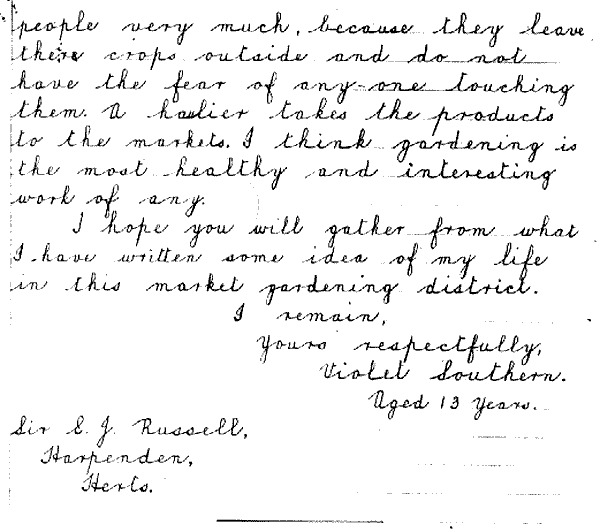 people very much, because they leave
there crops outside and do not
have the fear of any-one touching
them. A haulier takes the products
to the markets. I think gardening is
the most healthy and interesting
work of any.
I hope you will gather from what
I have written some idea of my life
in this market gardening district.
I remain,
Yours respectfully,
Violet Southern.
Aged 13 Years.
Sir E. J. Russell,
Harpenden,
Herts.